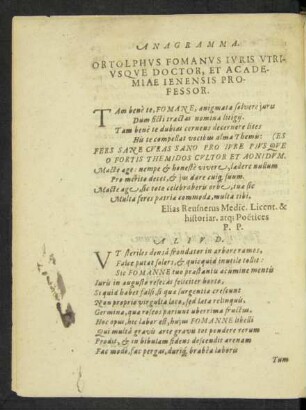 ANAGRAMMA.
ORTOLPHVS FOMANVS IVRIS VTRI-
VSQVE DOCTOR, ET ACADE-
MIAE IENENSIS PRO-
FESSOR.
TAm benè te, FOMANE, ænigmata solvere juris
Dum illi tractas nomina litigij.
Tam benè te dubias cernens decernere lites
His te compellat vocibus alma Themis: (ES
FERS SANE CVRAS SANO PRO IVRE PAVSQVE
O FORTIS THEMIDOS CVLTOR ET AONIDVM.
Macte age: nempe & honestè vivere, lædere nullum
Pro merito decet, & jus dare cuiq; suum.
Macte age, sic toto celebraberis orbe, tua sic
Multa feres patria commoda, multa tibi.
Elias Reusnerus Medic. Licent. &
historiar. atq; Poëtices
P. P.
ALIVD.
VT steriles densâ frondator in arbore ramos,
Falce putat solers, & quicquid inutile tollit:
Sic FOMANNE tuo præstantis acumine mentis
Iuris in augusto resecas feliciter horto,
Siquid habet falsi, si qua surgentia crescunt
Non propriè virgulta loco, sed lata relinquis.
Germina, quæ pariunt uberrima fructus.
Hoc opus, hic labor est, hujus FOMANNE libelli
Qui multò gravis arte gravis tot pondere rerum
Prodit, & in bibulam fidens descendit arenam
Fac modò, sic pergas, durijq; brabeia laboris
Tum